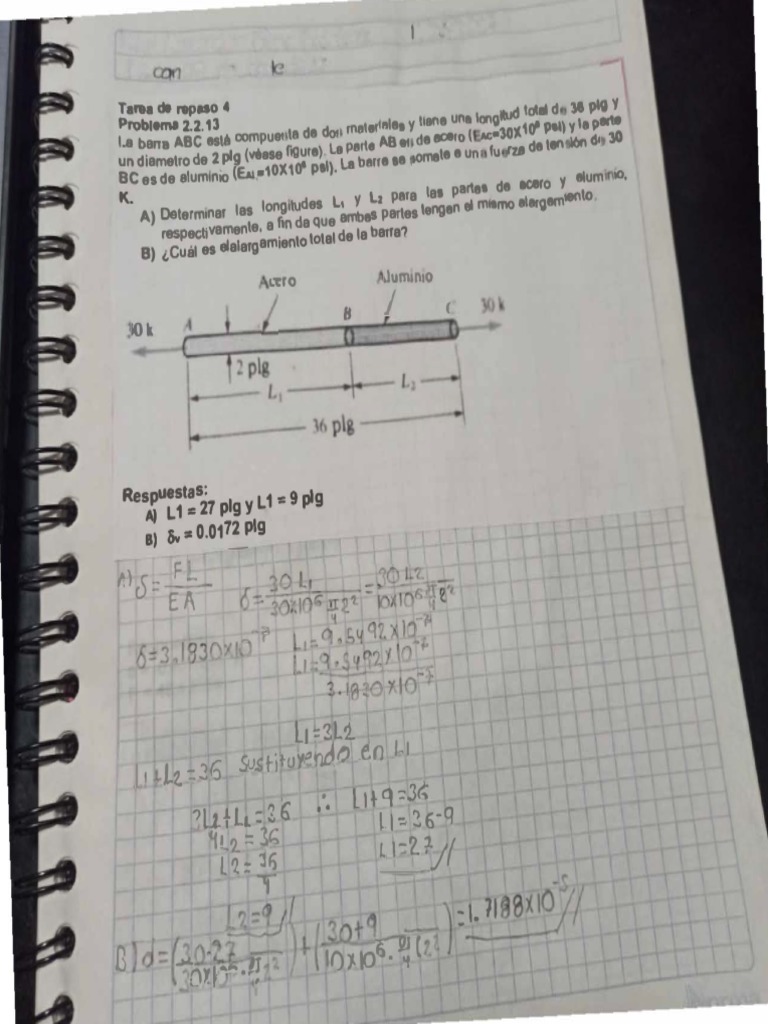 can le
Tarea de repaso 4
Problema 2.2.13
La barra ABC está compuenta de don materiales y tiene una longitud total de 36 plg y
un diametro de 2 plg (véase figura). La parte AB en de acero (EAC=30X10⁶ psi) y la parte
BC es de aluminio (EAL=10X10⁶ psi). La barra se somete a una fuerza de tensión de 30
K.
A) Determinar las longitudes L₁ y L₂ para las partes de acero y aluminio,
respectivamente, a fin de que ambas partes tengan el mismo alargamiento.
B) ¿Cuál es elalargamiento total de la barra?
Acero Aluminio
30 k A B C 30 k
2 plg
L₁ L₂
36 plg
Respuestas:
A) L1 = 27 plg y L1 = 9 plg
B) δv = 0.0172 plg
A) δ = FL/EA δ = 30 L1/30x10⁶ π/4 2² = 30 L2/10x10⁶ · π/4 2²
δ=3.1830x10⁻⁷ L1=9.5492x10⁻⁷
L1=9.5492x10⁻⁷/3.1830x10⁻⁷
L1=3L2
L1+L2=36 Sustituyendo en L1
3L2+L2=36 ∴ L1+9=36
4L2=36 L1=36-9
L2=36/4 L1=27//
L2=9//
B) d=(30·27/30x10⁶ · π/4 2²)+(30+9/10x10⁶ · π/4 (2²)=1.7188x10⁻⁵//